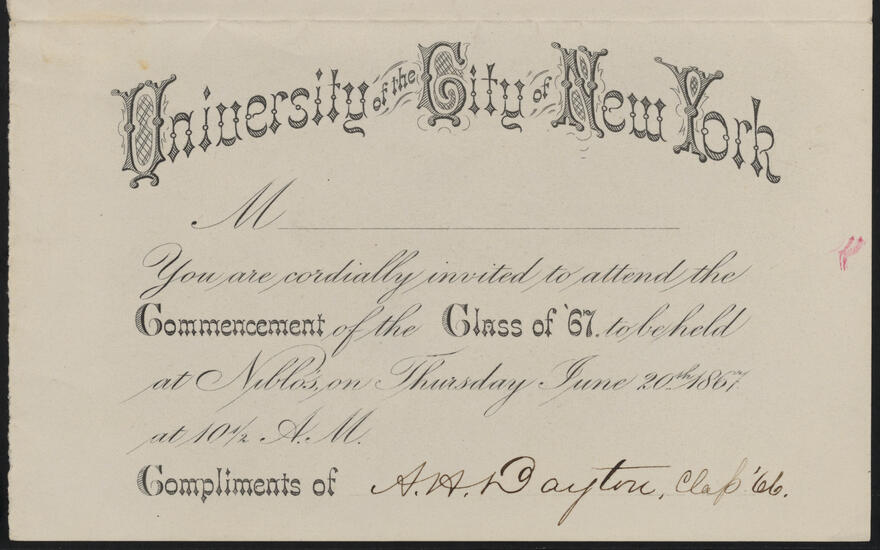 University of the City of New York
M
You are cordially invited to attend the
Commencement of the Class of '67. to be held
at Niblo's, on Thursday June 20th 1867
at 10½ A.M.
Compliments of A. H. Dayton, Class '66.